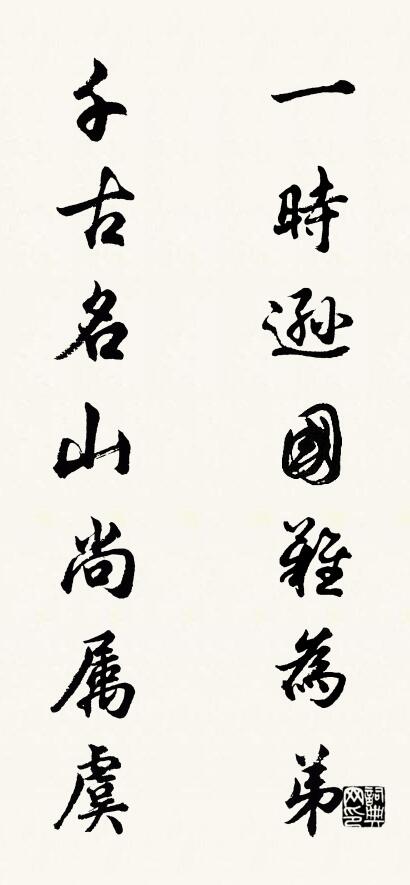 一時遜國難為弟
千古名山尚属虞
詞典網印